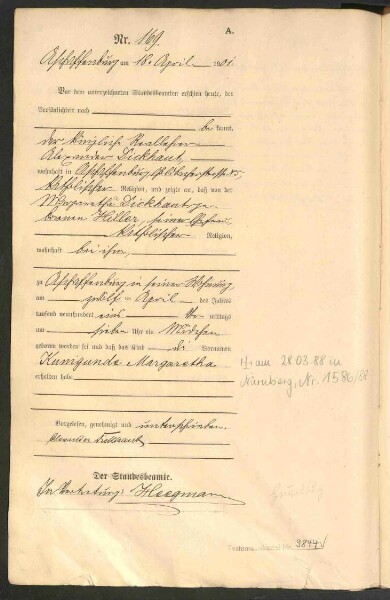 A.
Nr. 169.
Aschaffenburg am 18. April 1901.
Vor dem unterzeichneten Standesbeamten erschien heute, der
Persönlichkeit nach
be kannt,
der königliche Reallehrer
Alexander Dickhaut,
wohnhaft in Aschaffenburg,
katholischer Religion, und zeigte an, daß von der
Margaretha Dickhaut, ge-
borenen Heller, seiner Ehefrau,
katholischer Religion,
wohnhaft bei ihm,
zu Aschaffenburg in seiner Wohnung
am zwölf ten April des Jahres
tausend neunhundert eins Vor mittags
um sieben Uhr ein Mädchen
geboren worden sei und daß das Kind die Vornamen
Kunigunde Margaretha
erhalten habe
H: am 28.03.88 in
Nürnberg, Nr. 1586/88
Vorgelesen, genehmigt und unterschrieben.
Alexander Dickhaut
Der Standesbeamte.
In Vertretung: Heegmann
3844